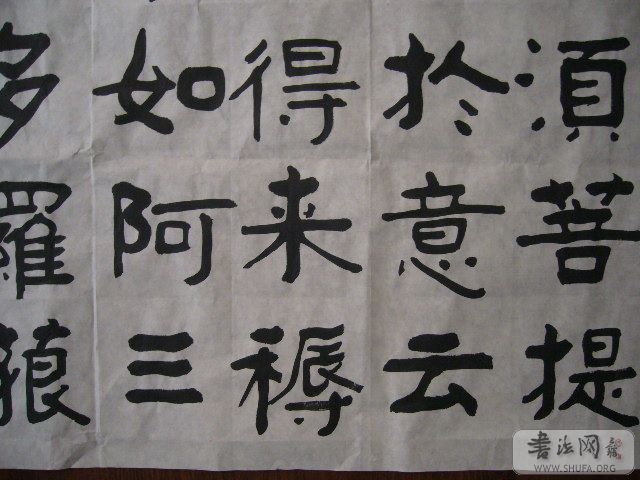 湏菩提
扵意云
得来耨
如阿三
多羅藐
书法网
WWW.SHUFA.ORG